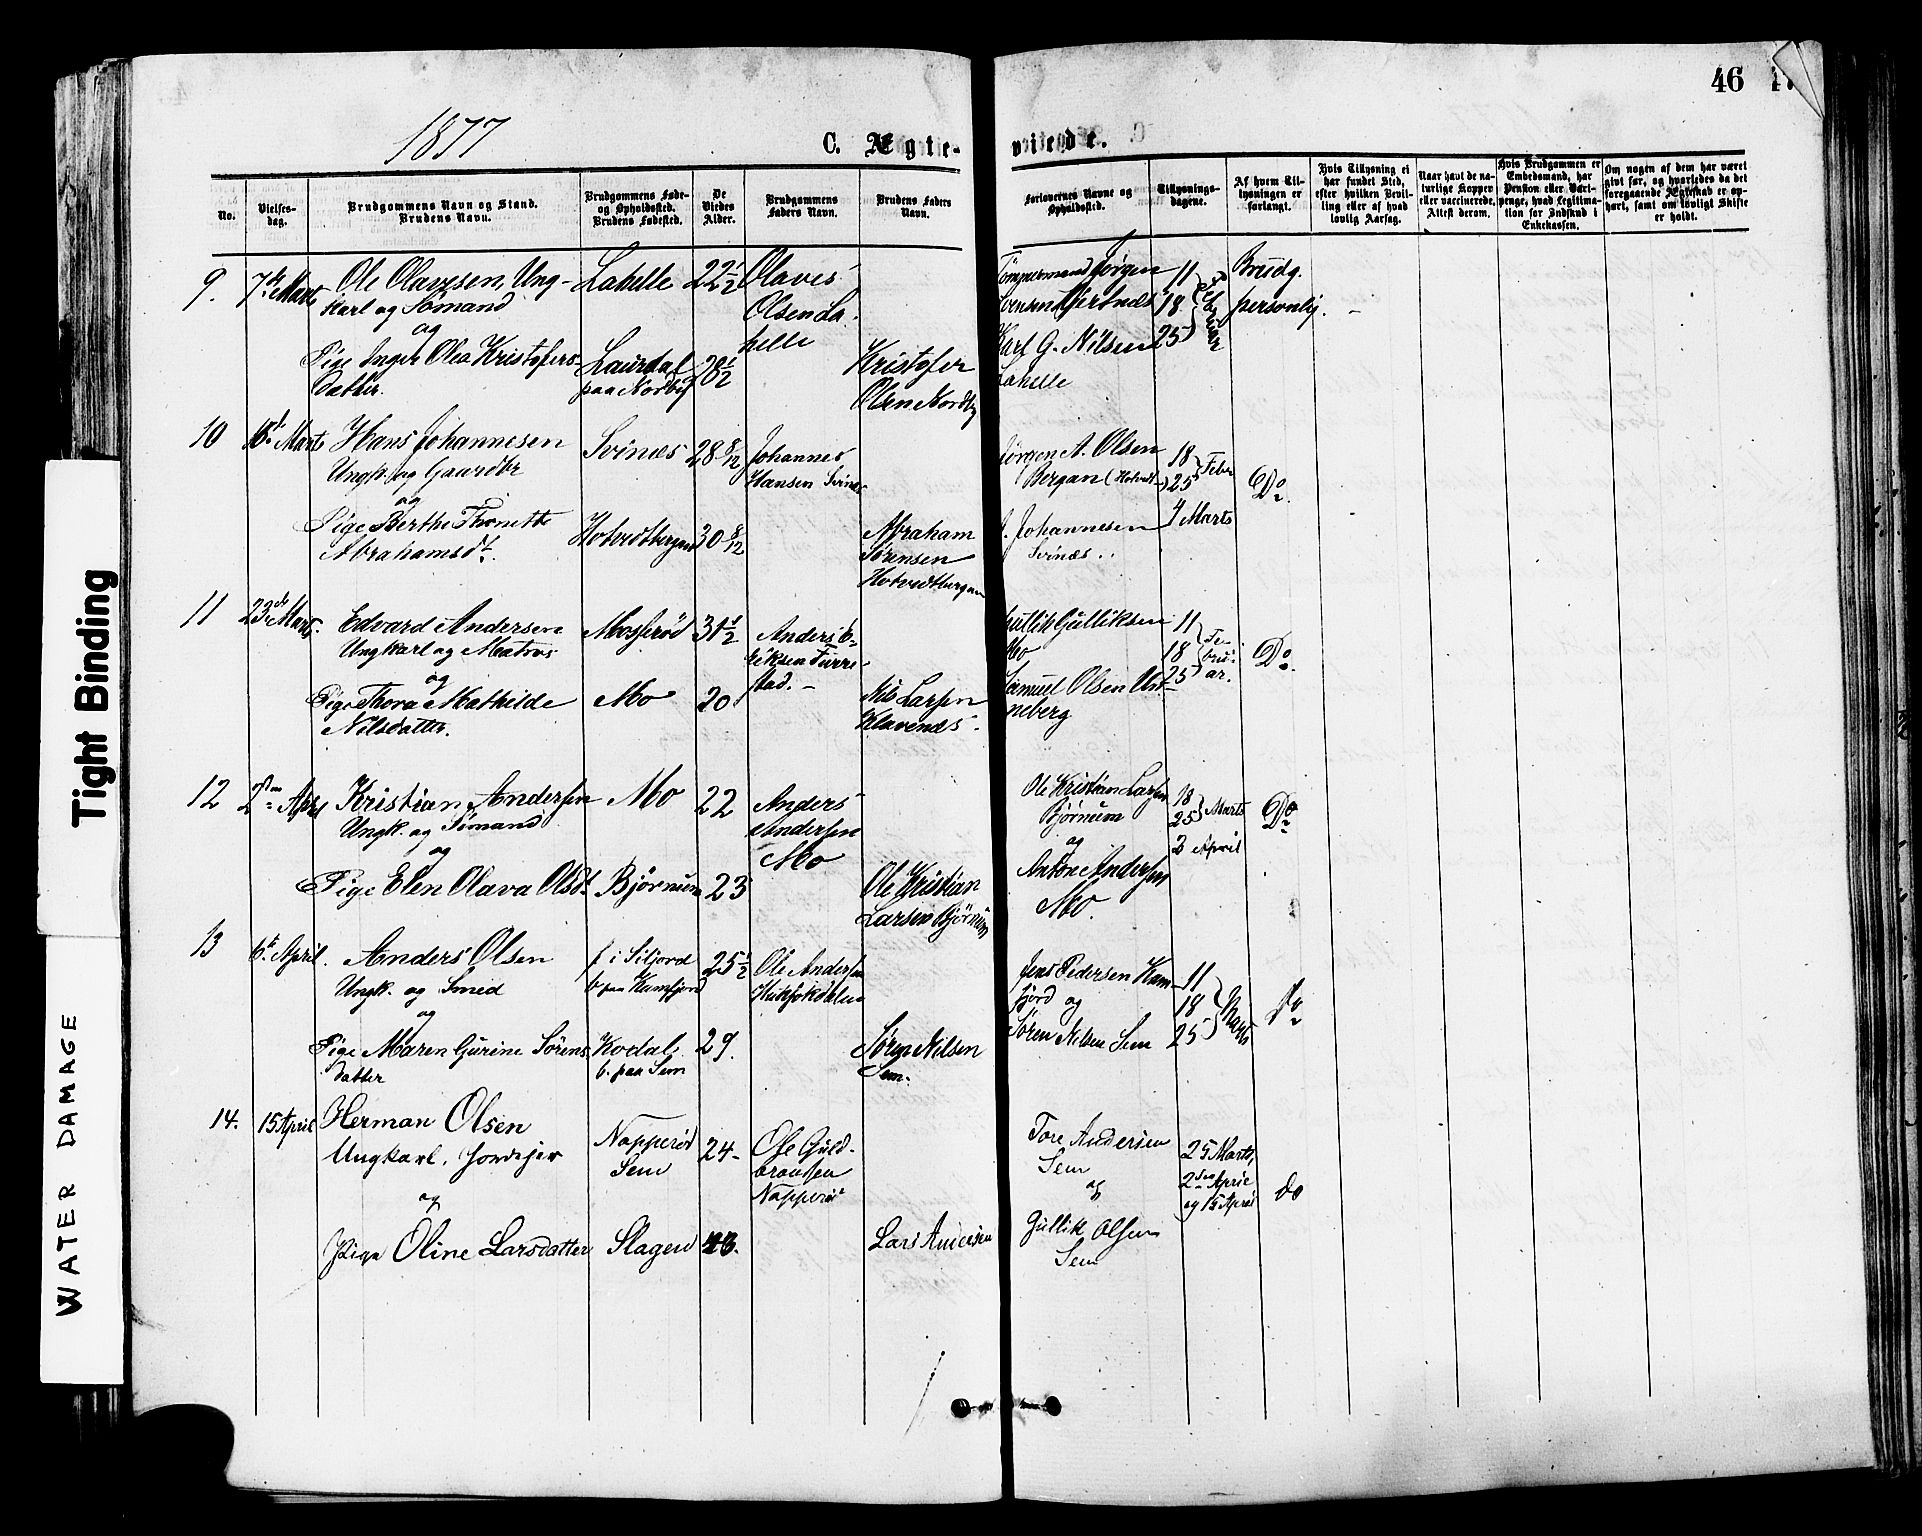 46
1877
C. Ægte-
viede.
No.
Vielses-
dag.
Brudgommens Navn og Stand.
Brudens Navn.
Brudgommens Føde-
og Opholdssted.
Brudens Fødested.
De
Viedes
Alder.
Brudgommens
Faders Navn.
Brudens Faders
Navn.
Forlovernes Navne og
Opholdssted.
Tillysnings-
dagene.
Af hvem Til-
lysningen er
forlangt.
Hvis Tillysning ei
har fundet Sted,
efter hvilken Bevil-
ling eller af hvad
lovlig Aarsag.
Naar havt de na-
turlige Kopper
eller vaccinerede.
Attest derom.
Hvis Brudgommen er
Embedsmand, har
Pension eller Vart-
penge, hvad Legitima-
tion for Indskud i
Enkekassen.
Om nogen af dem har været
gift før, og hvorledes da det
foregaaende Ægteskab er op-
hørt, samt om lovligt Skifte
er holdt.
9. 7de Marts Ole Olavesen, Ung-
karl og Sømand
og
Pige Inger Olea Kristofers-
datter.
Lahelle
Laurdal
paa Nordby
22 1/2
28 1/2
Olaves
Olsen La-
helle
Kristofer
Olsen Nordby
Tømmermand Jørgen
Svensen Gjertnæs
Karl G. Nilsen
Lahelle
11
18
25
Brudg.
personlig.
10 16d Marts Hans Johannesen
Ungk. og Gaardbr
og
Pige Berthe Thonette
Abrahamsdt.
Svinæs
Hotvedtbergan
28 8/12
30 8/12
Johannes
Hansen Svinæs
Abraham
Sørensen
Hotvedtbergan
Jørgen A. Olsen
Bergan (Hotvedt-)
Johannesen
Svinæs
18
25 Febr
4 Marts
Do
11 23de Marts. Edvard Andersen
Ungkarl og Matros
og
Pige Thora Mathilde
Nilsdatter.
Mosserød
Mo
31 1/2
20
Anders E-
riksen Furre-
stad.
Nils Larsen
Klavenæs.
Gullik Gulliksen
Mo
Samuel Olsen Un-
neberg
11
18
25
Fe-
bru-
ar.
Do
12 2den April Kristian Andersen
Ungk. og Sømand
og
Pige Elen Olava Olsdt.
Mo
Bjørnum
22
23
Anders
Andersen
Mo
Ole Kristian
Larsen Bjørnum
Ole Kristian Larsen
Bjørnum
og
Anton Andersen
Mo.
18
25 Marts
2 April
Do
13 6te April. Anders Olsen
Ungk. og Smed
og
Pige Maren Gurine Sørens-
datter
f i Siljord
b paa Kamfjord
Kodal
b. paa Sem
25 1/2
29.
Ole Andersen
Søren Nilsen
Sem.
Jens Pedersen Kam-
fjord og
Søren Nilsen Sem
11
18
25
Marts
Do
14. 15 April Herman Olsen
Ungkarl, Jordejer
og
Pige Oline Larsdatter
Napperød
Sem
Slagen
24
Ole Guld-
brandsen
Napperød
Lars Andersen
Tore Andersen
Sem
og
Gullik Olsen
Sem
25 Marts,
2den April
og 15 April
do
Tight Binding
WATER DAMAGE